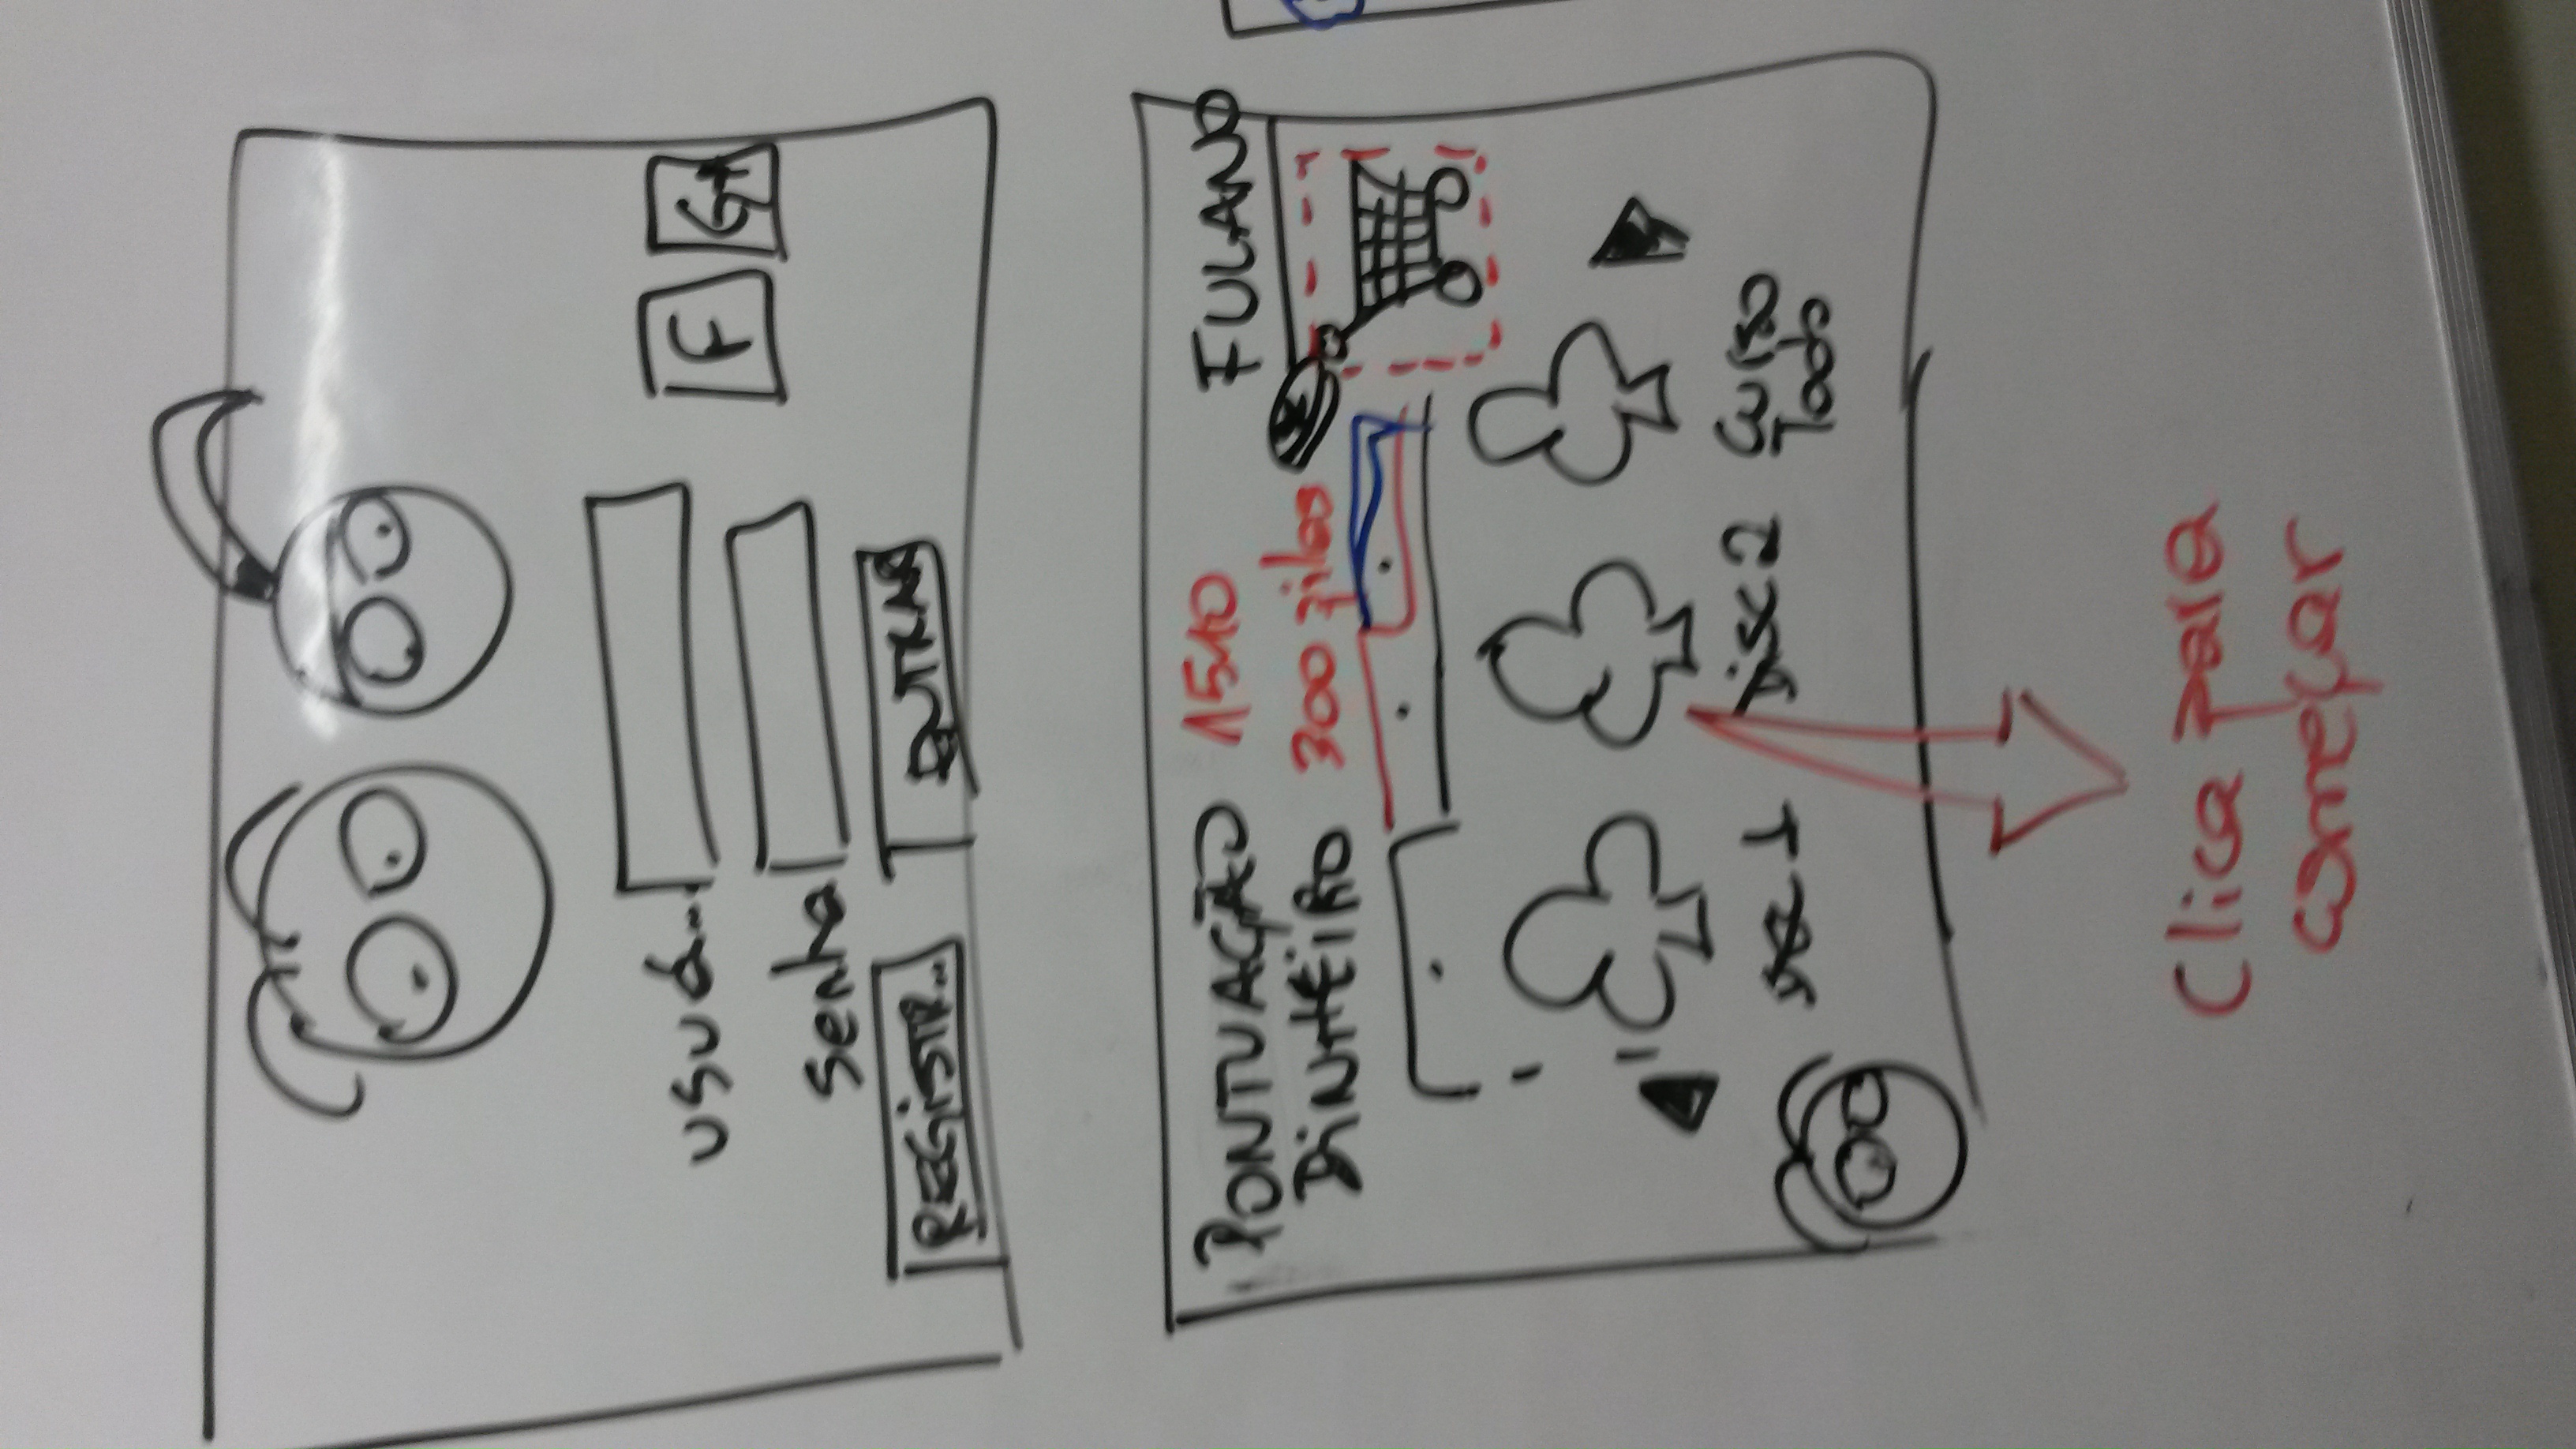 usuá...
F G+
senha
REGISTR... ENTRAR
PONTUAÇÃO 1510 FULANO
DINHEIRO 300 zilos
Disc 1 Disc 2 Curso
Todo
Clica para
começar